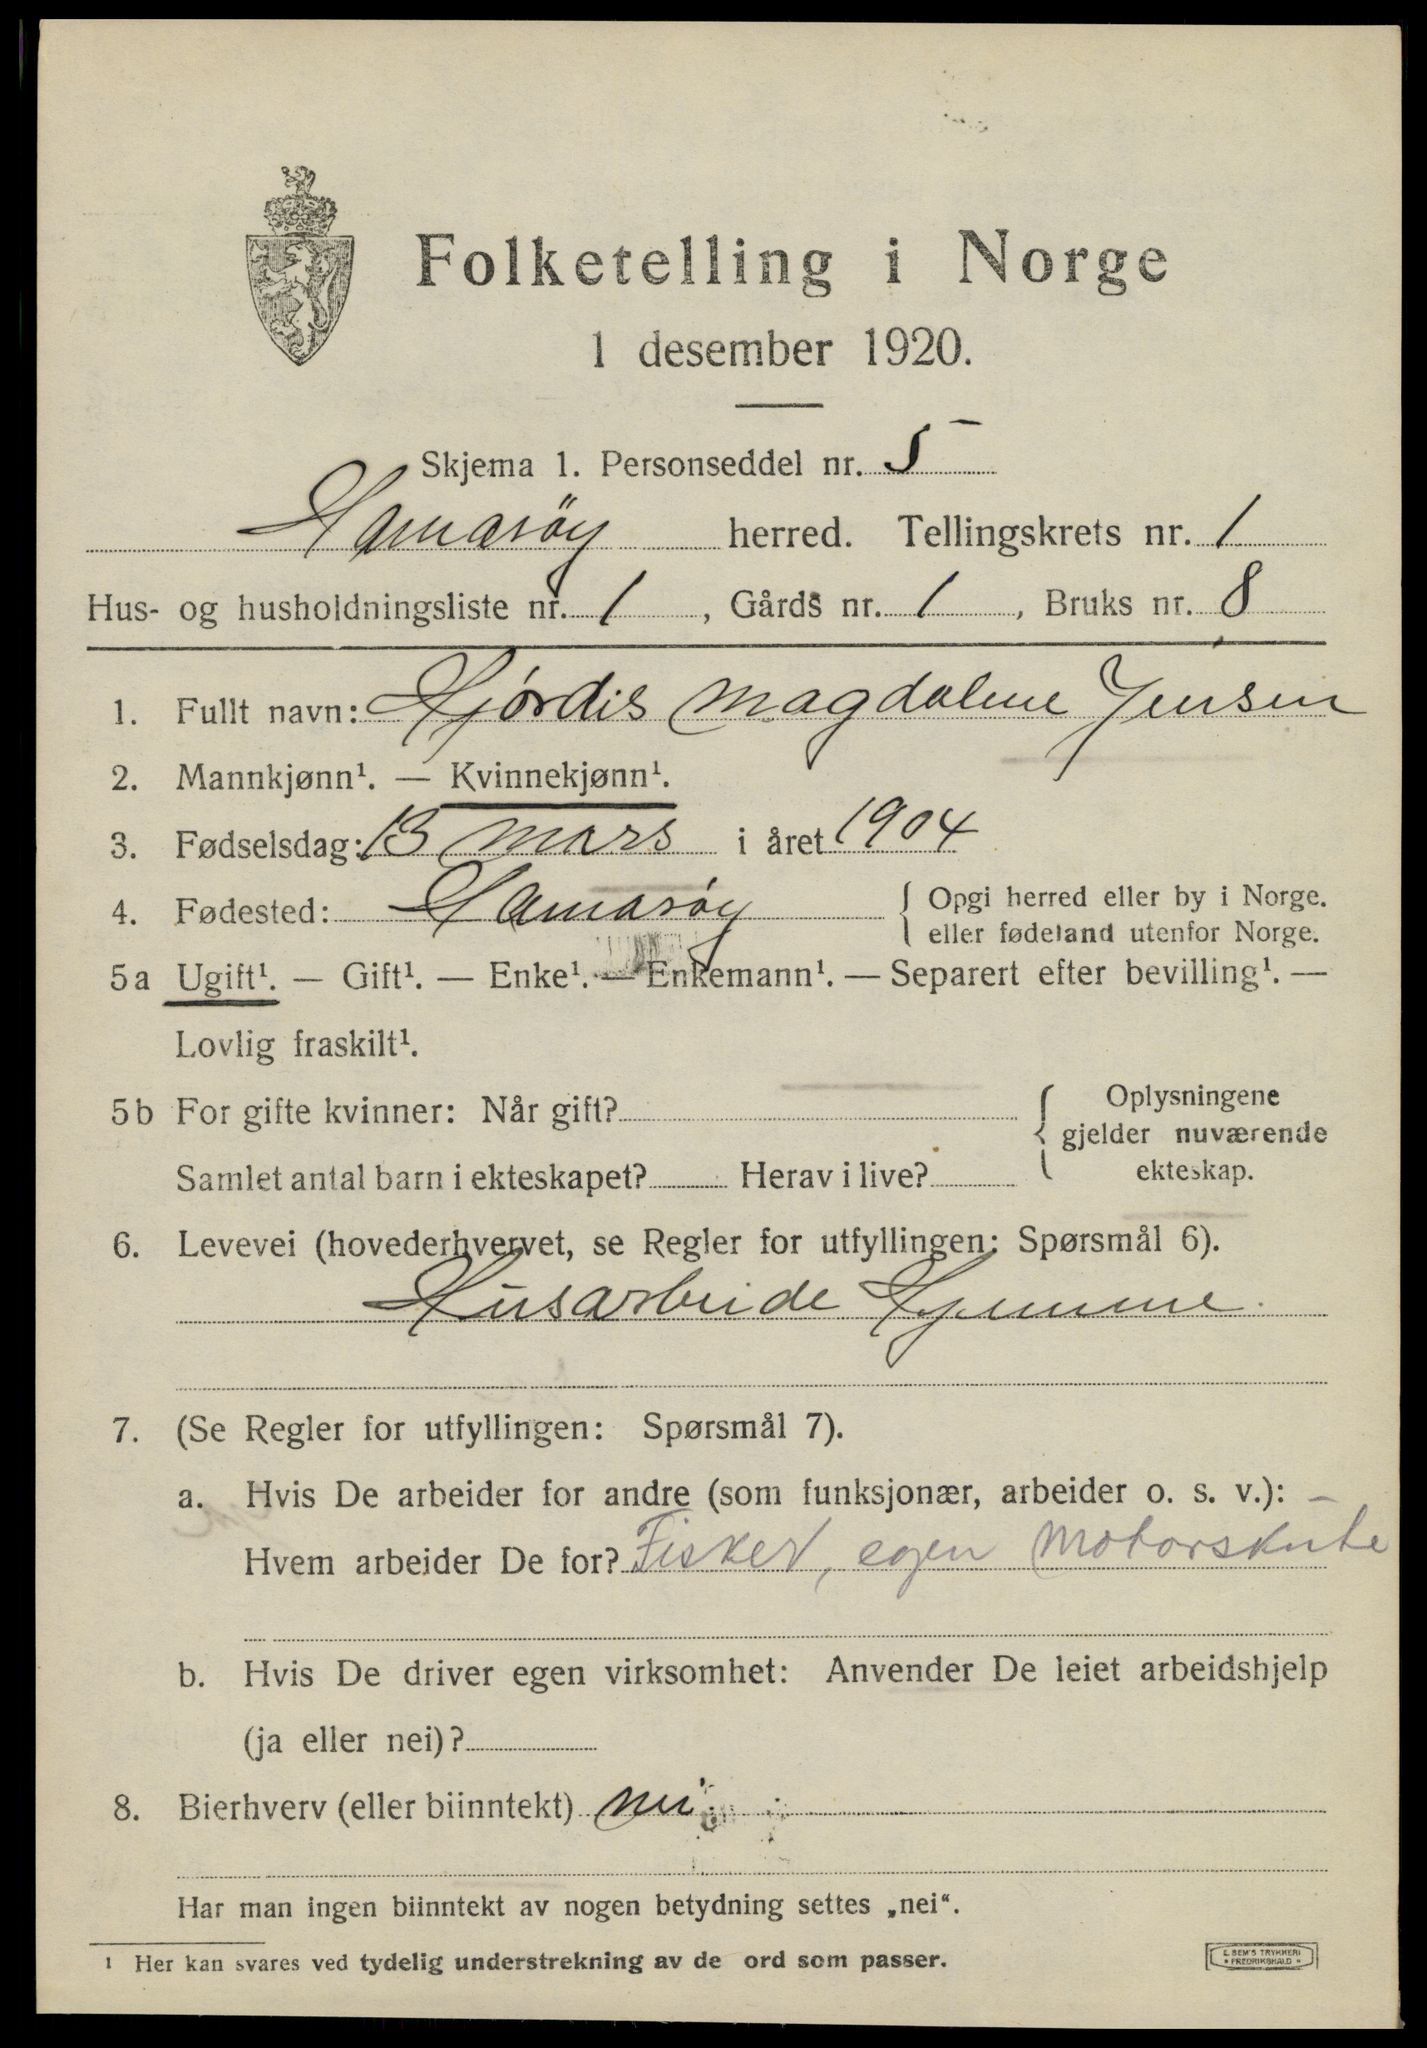 Folketelling i Norge
1 desember 1920.
Skjema 1. Personseddel nr. 5
Hamarøy herred. Tellingskrets nr. 1
Hus- og husholdningsliste nr. 1, Gårds nr. 1, Bruks nr. 8
1. Fullt navn: Hjørdis Magdalene Jensen
2. Mannkjønn¹. — Kvinnekjønn¹.
3. Fødselsdag: 13 mars i året 1904
4. Fødested: Hamarøy { Opgi herred eller by i Norge.
eller fødeland utenfor Norge.
5a Ugift¹. — Gift¹. — Enke¹. — Enkemann¹. — Separert efter bevilling¹. —
Lovlig fraskilt¹.
5b For gifte kvinner: Når gift? { Oplysningene
gjelder nuværende
Samlet antal barn i ekteskapet? Herav i live? ekteskap.
6. Levevei (hovederhvervet, se Regler for utfyllingen: Spørsmål 6).
Husarbeide Hjemme.
7. (Se Regler for utfyllingen: Spørsmål 7).
a. Hvis De arbeider for andre (som funksjonær, arbeider o. s. v.): –
Hvem arbeider De for? Fisker, egen Motorskute
b. Hvis De driver egen virksomhet: Anvender De leiet arbeidshjelp
(ja eller nei)?
8. Bierhverv (eller biinntekt) nei
Har man ingen biinntekt av nogen betydning settes „nei“.
¹ Her kan svares ved tydelig understrekning av de ord som passer.
E. SEM'S TRYKKERI
* FREDRIKSHALD *